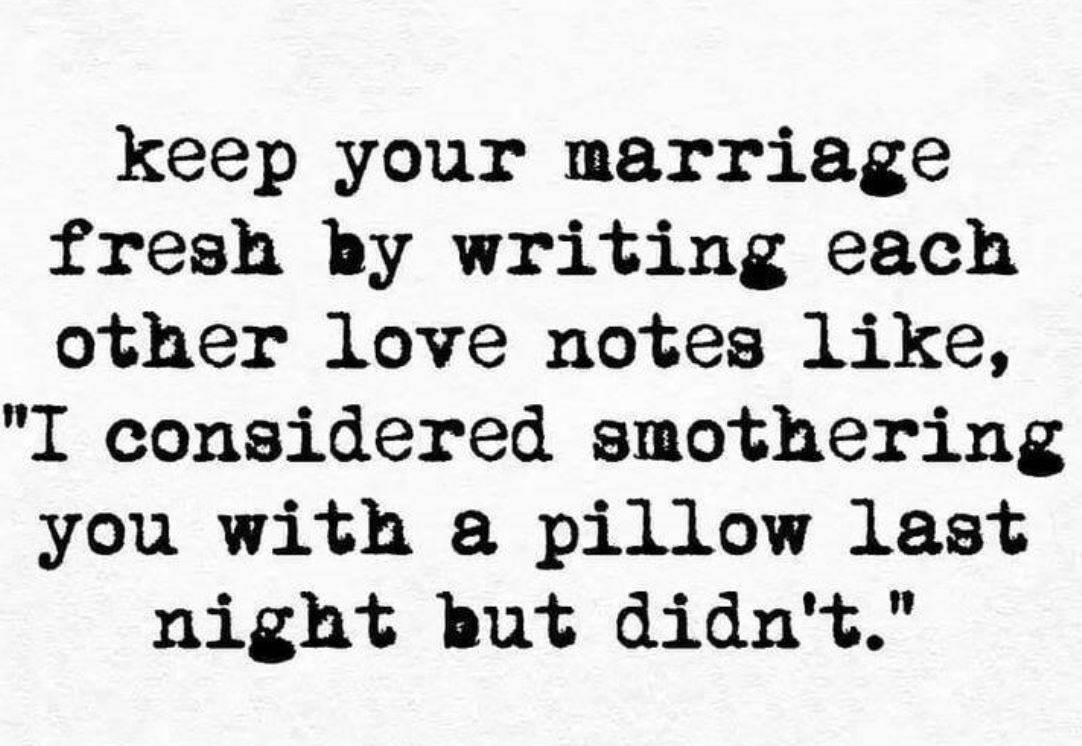 keep your marriage
fresh by writing each
other love notes like,
"I considered smothering
you with a pillow last
night but didn't."